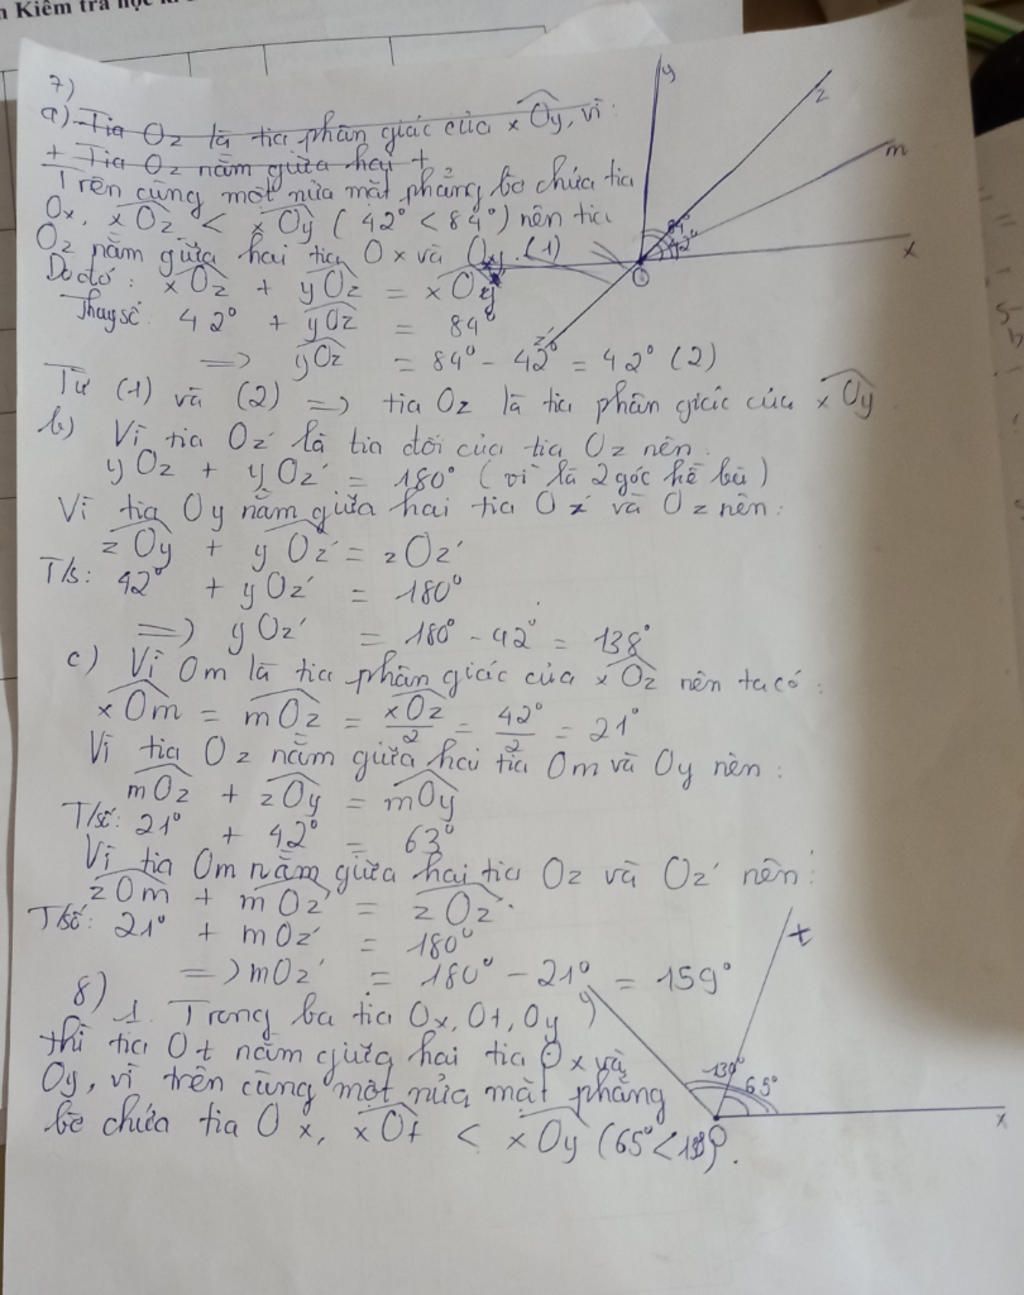 n Kiểm tra học k
7)
a) Tia Oz là tia phân giác của xOy, vì:
+ Tia Oz nằm giữa hai t
Trên cùng một nửa mặt phẳng bờ chứa tia
Ox, xOz < xOy (42° < 84°) nên tia
Oz nằm giữa hai tia Ox và Oy. (1)
Do đó: xOz + yOz = xOy
Thay số: 42° + yOz = 84°
=> yOz = 84° - 42° = 42° (2)
Từ (1) và (2) => tia Oz là tia phân giác của xOy
b) Vì tia Oz' là tia đối của tia Oz nên
yOz + yOz' = 180° (vì là 2 góc kề bù)
Vì tia Oy nằm giữa hai tia Oz' và Oz nên:
zOy + yOz' = zOz'
T/s: 42° + yOz' = 180°
=> yOz' = 180° - 42° = 138°
c) Vì Om là tia phân giác của xOz nên ta có:
xOm = mOz = xOz/2 = 42°/2 = 21°
Vì tia Oz nằm giữa hai tia Om và Oy nên:
mOz + zOy = mOy
T/số: 21° + 42° = 63°
Vì tia Om nằm giữa hai tia Oz và Oz' nên:
zOm + mOz' = zOz'
T/số: 21° + mOz' = 180°
=> mOz' = 180° - 21° = 159°
8)
1. Trong ba tia Ox, Ot, Oy
thì tia Ot nằm giữa hai tia Ox và
Oy, vì trên cùng một nửa mặt phẳng
bờ chứa tia Ox, xOt < xOy (65° < 130°).
y
z
m
x
84°
42°
O
z'
y
t
130°
65°
O
x